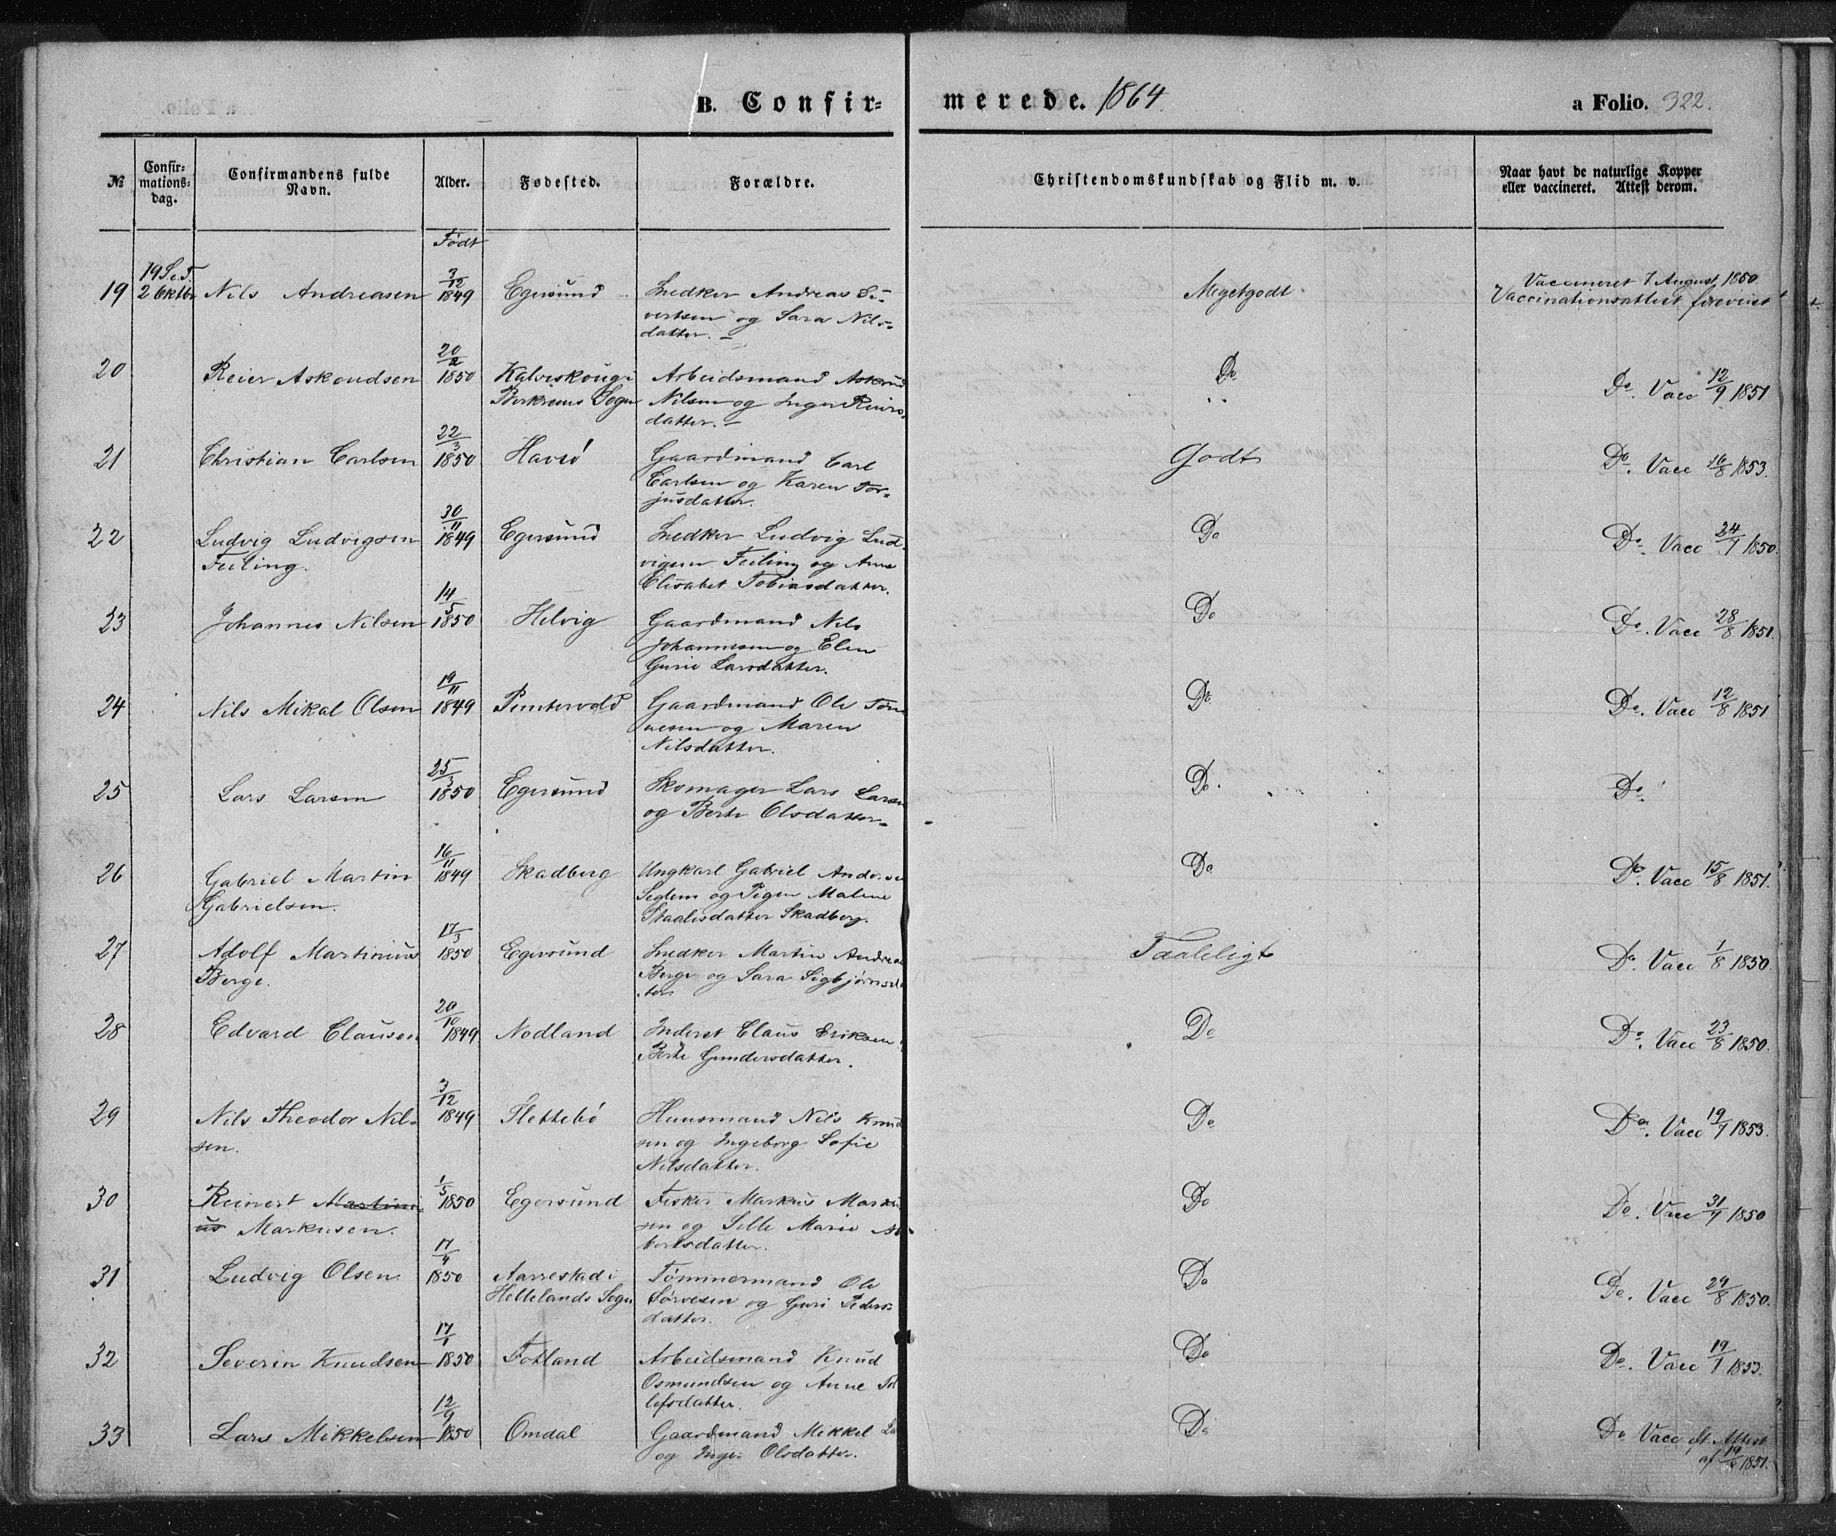 B. Confir-
merede. 1864.
a Folio. 322.
№
Confir-
mations-
dag.
Confirmandens fulde
Navn.
Alder.
Fødested.
Forældre.
Christendomskundskab og Flid m. v.
Naar havt de naturlige Kopper
eller vaccineret. Attest derom.
Født
19 S. e. T.
19 2 Oktbr Nils Andreasen 3/12 1849 Egersund Snedker Andreas Si-
vertsen og Sara Nils-
datter. Megetgodt Vaccineret 7 August 1850
Vaccinationsattest foreviist
20 Reier Askoudsen 20/2 1850 Kalviskoug i
Berkreims Sogn Arbeidsmand
Nilsen og Inger Reiers-
datter. Do Do. Vacc 12/9 1851
21 Christian Carlsen 22/3 1850 Havsö Gaardmand Carl
Carlsen og Karen Tor-
jusdatter. Godt Do. Vacc 16/8 1853.
22 Ludvig Ludvigsen
Feiling. 30/11 1849 Egersund Snedker Ludvig Lud-
vigsen Feiling og Anne
Elisabet Tobiasdatter. Do Do. Vacc 24/7 1850.
23 Johannes Nilsen 14/5 1850 Helvig Gaardmand Nils
Johannesen og Elen
Gurie Larsdatter. Do Do. Vacc 28/8 1851.
24 Nils Mikal Olsen 19/11 1849 Puntervold Gaardmand Ole Tøn
nesen og Maren
Nilsdatter. Do Do. Vacc 12/8 1851
25 Lars Larsen 25/3 1850 Egersund Skomager Lars Larsen
og Berte Olsdatter. Do. Do.
26 Gabriel Martin
Gabrielsen. 16/11 1849 Skadberg Ungkarl Gabriel Andersen
Seglem og Pigen Malene
Staalesdatter Skadberg. Do Do. Vacc 15/8 1851.
27 Adolf Martinius
Berge. 17/3 1850 Egersund Snedker Martin Andreas
Berge og Sara Sigbjørnsdat
ter. Taaleligt Do. Vacc 1/8 1850.
28 Edvard Clausen 20/10 1849 Nodland Inderst Claus Eriksen
Berte Gundersdatter. Do Do. Vacc 23/8 1850.
29 Nils Theodor Nil-
sen. 3/12 1849 Slettebö Huusmand Nils Knud
sen og Ingeborg Sofie
Nilsdatter. Do Do. Vacc 19/7 1853.
30 Reinert Martini-
us Markusen. 1/5 1850 Egersund Fisker Markus Marku
sen og Sille Marie As
bornsdatter. Do Do. Vacc 31/7 1850
31 Ludvig Olsen 17/4 1850 Aarrestad i
Hellelands Sogn Tømmermand Ole
Sørvesen og Guri Peders-
datter. Do Do. Vacc 29/8 1850.
32 Severin Knudsen 17/1 1850 Fotland Arbeidsmand Knud
Osmundsen og Anne Tol
lefsdatter. Do Do. Vacc 19/7 1853.
33 Lars Mikkelsen 12/9 1850 Omdal Gaardmand Mikkel La
og Inger Olsdatter. Do Do Vacc flt Attest
af 19/8 1851.